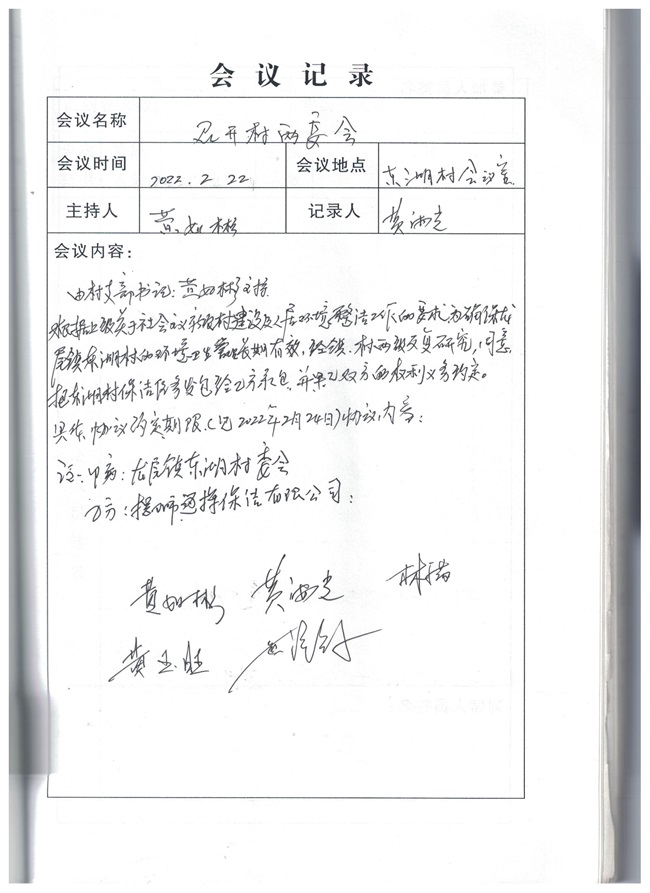 会议记录
会议名称 召开村两委会
会议时间 2022.2.22 会议地点 东湖村会议室
主持人 黄如彬 记录人 黄海光
会议内容：
由村支部书记：黄如彬主持
根据上级关于社会主义新农村建设及人居环境整洁工作的要求为确保龙
尾镇东湖村的环境卫生管理长期有效，经镇、村两级反复研究，同意
把东湖村保洁任务发包给乙方承包，并果乙双方的权利义务约定。
具体协议约定期限(见2022年2月24日)协议内容：
注：甲方：龙尾镇东湖村委会
乙方：揭 保洁有限公司：
黄如彬 黄海光 林瑞
黄玉旺